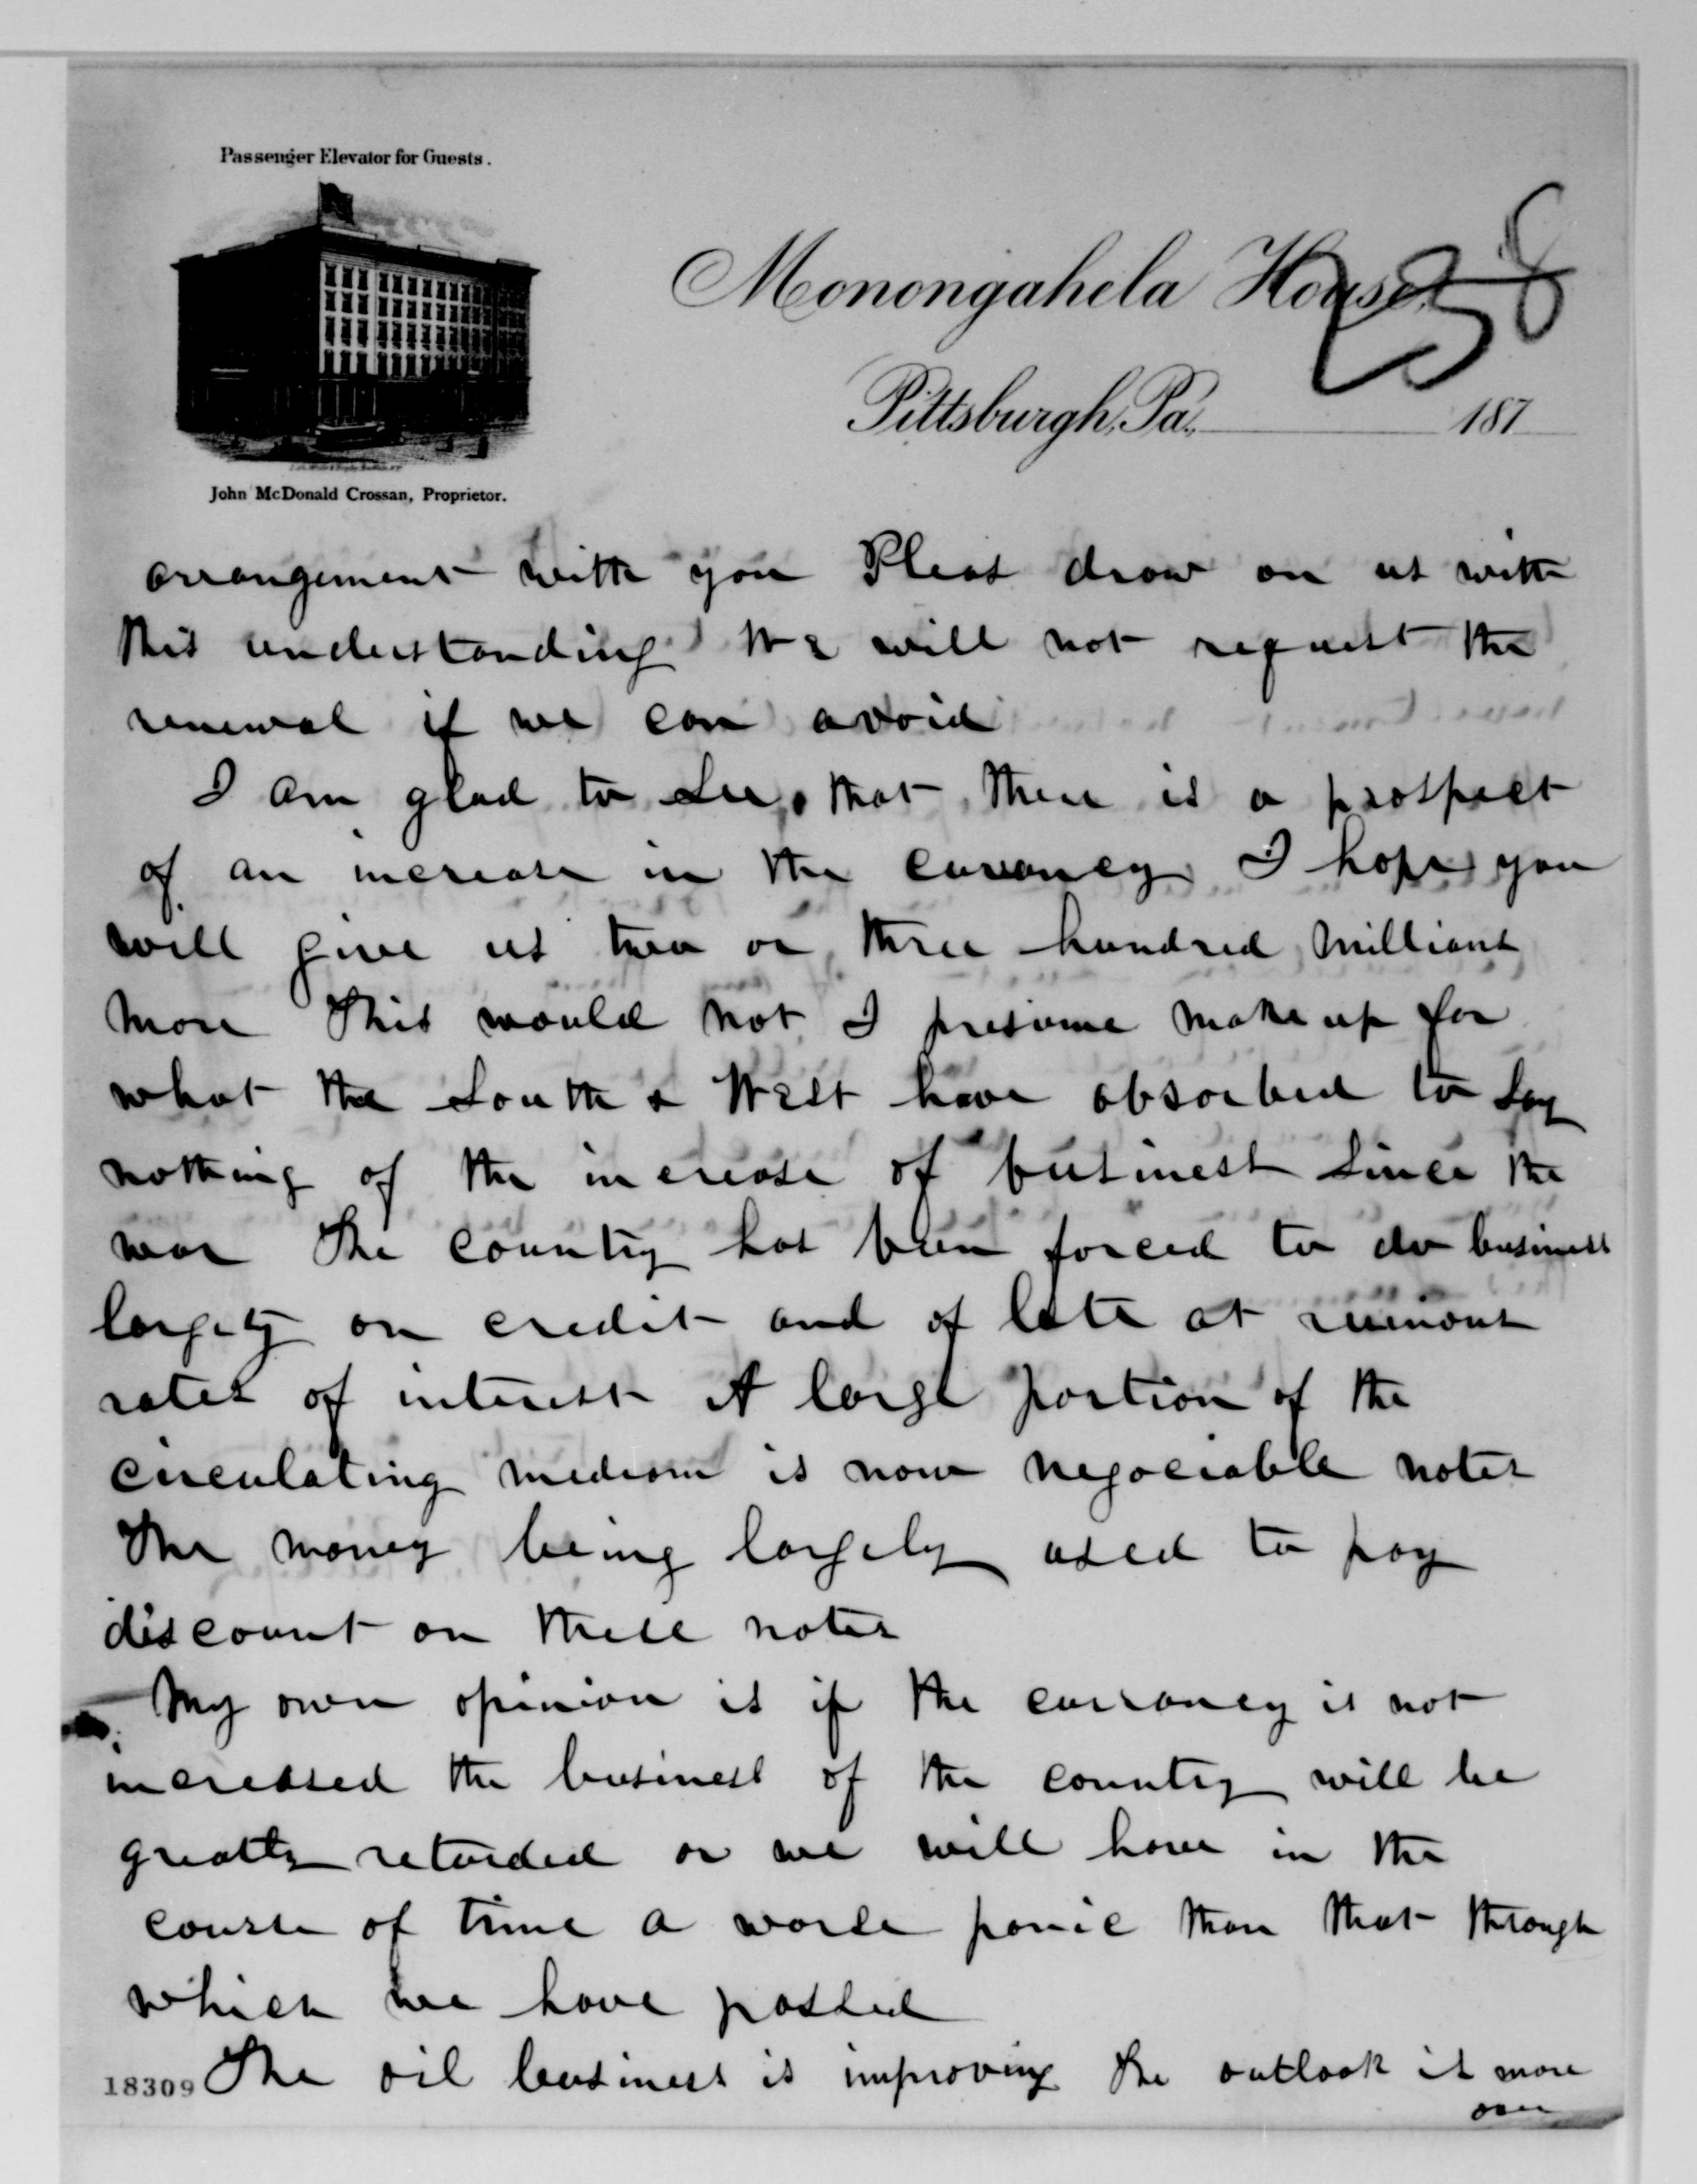 Passenger Elevator for Guests.
Monongahela House,
258
Pittsburgh, Pa., 187
John McDonald Crossan, Proprietor.
arrangement with you Pleas draw on us with
this understanding We will not request the
renewal if we can avoid
I am glad to see that there is a prospect
of an increase in the currancy I hope you
will give us two or three hundred millions
more This would not I presume make up for
what the South & West have absorbed to say
nothing of the increase of business since the
war The country has been forced to do business
largely on credit and of late at ruinous
rates of interest A large portion of the
circulating medium is now negociable notes
The money being largely used to pay
discount on these notes
My own opinion is if the currancy is not
increased the business of the country will be
greatly retarded or we will have in the
course of time a worse panic than that through
which we have passed
18309 The oil business is improving The outlook is more
over